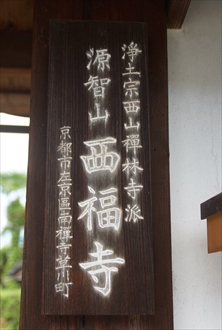 浄土宗西山禅林寺派
源智山 西福寺
京都市左京區南禅寺草川町